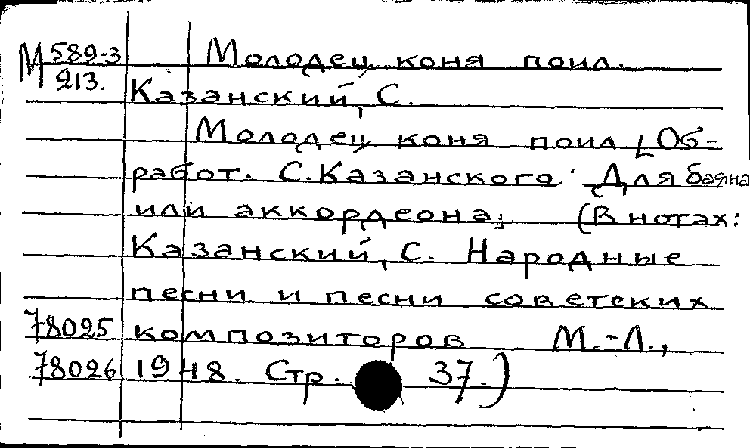 М 589-3 Молодец коня поил.
213.
Казанский, С.
Молодец коня поил [Об-
работ. С. Казанского Для баяна
или аккордеона; (В нотах:
Казанский, С. Народные
песни и песни советских
78025 композиторов М.-Л.,
78026 1948. Стр. 37.)